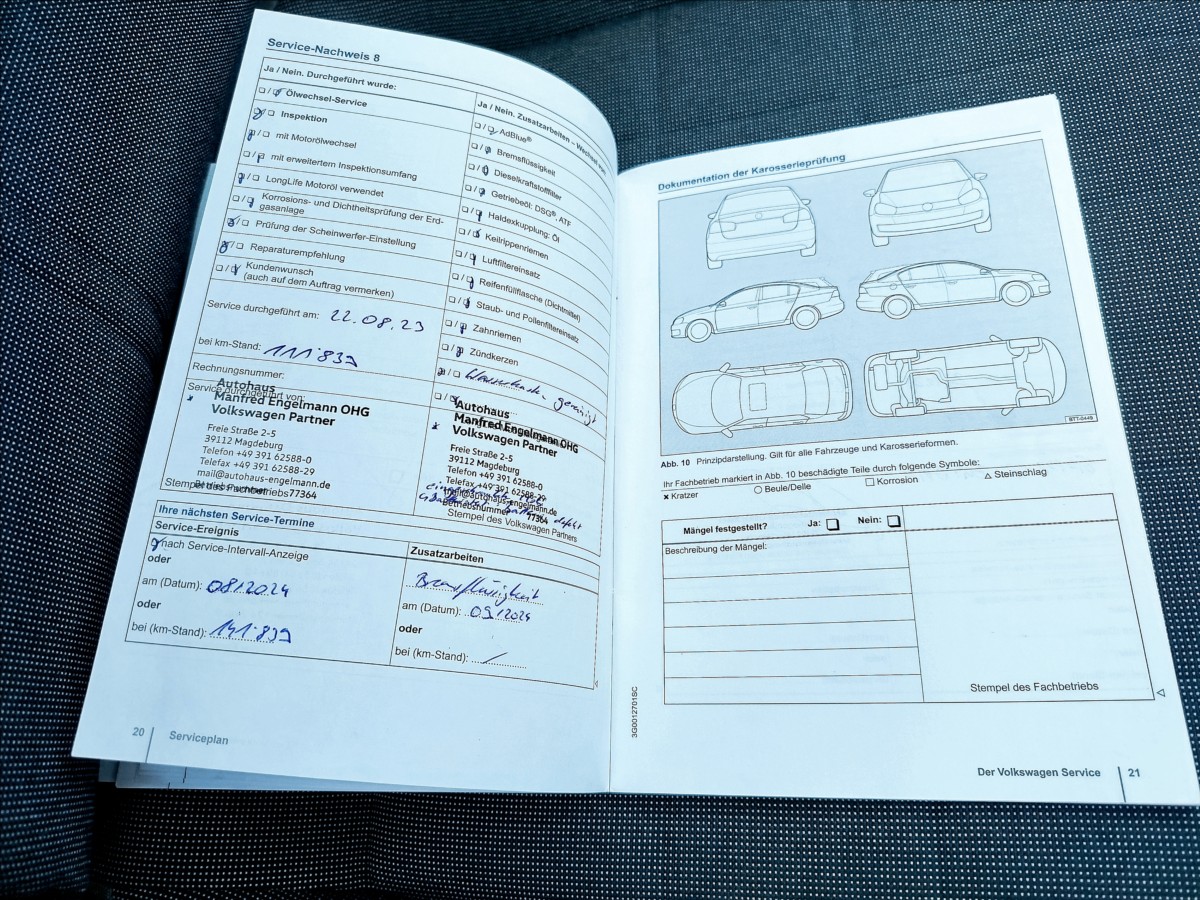 Service-Nachweis 8
Ja / Nein. Durchgeführt wurde:
Ölwechsel-Service
Inspektion
mit Motorölwechsel
mit erweitertem Inspektionsumfang
LongLife Motoröl verwendet
Korrosions- und Dichtheitsprüfung der Erd-
gasanlage
Prüfung der Scheinwerfer-Einstellung
Reparaturempfehlung
Kundenwunsch
(auch auf dem Auftrag vermerken)
Service durchgeführt am: 22.08.23
bei km-Stand: 111.839
Rechnungsnummer:
Service durchgeführt von:
Autohaus
Manfred Engelmann OHG
Volkswagen Partner
Freie Straße 2-5
39112 Magdeburg
Telefon +49 391 62588-0
Telefax +49 391 62588-29
mail@autohaus-engelmann.de
Betriebsnummer 77364
Stempel des Fachbetriebs
Ja / Nein. Zusatzarbeiten – Wechsel
AdBlue®
Bremsflüssigkeit
Dieselkraftstofffilter
Getriebeöl: DSG®, ATF
Haldexkupplung: Öl
Keilrippenriemen
Luftfiltereinsatz
Reifenfüllflasche (Dichtmittel)
Staub- und Pollenfiltereinsatz
Zahnriemen
Zündkerzen
Wasserkasten gereinigt
Autohaus
Manfred Engelmann OHG
Volkswagen Partner
Freie Straße 2-5
39112 Magdeburg
Telefon +49 391 62588-0
Telefax +49 391 62588-29
mail@autohaus-engelmann.de
Betriebsnummer 77364
defekt
Stempel des Volkswagen Partners
Ihre nächsten Service-Termine
Service-Ereignis
nach Service-Intervall-Anzeige
oder
am (Datum): 08/2024
oder
bei (km-Stand): 141.839
Zusatzarbeiten
Bremsflüssigkeit
am (Datum): 09/2024
oder
bei (km-Stand): /
20
Serviceplan
Dokumentation der Karosserieprüfung
BTT-0449
Abb. 10 Prinzipdarstellung. Gilt für alle Fahrzeuge und Karosserieformen.
Ihr Fachbetrieb markiert in Abb. 10 beschädigte Teile durch folgende Symbole:
× Kratzer ○ Beule/Delle □ Korrosion △ Steinschlag
Mängel festgestellt? Ja: Nein:
Beschreibung der Mängel:
Stempel des Fachbetriebs
3G0012701SC
Der Volkswagen Service
21